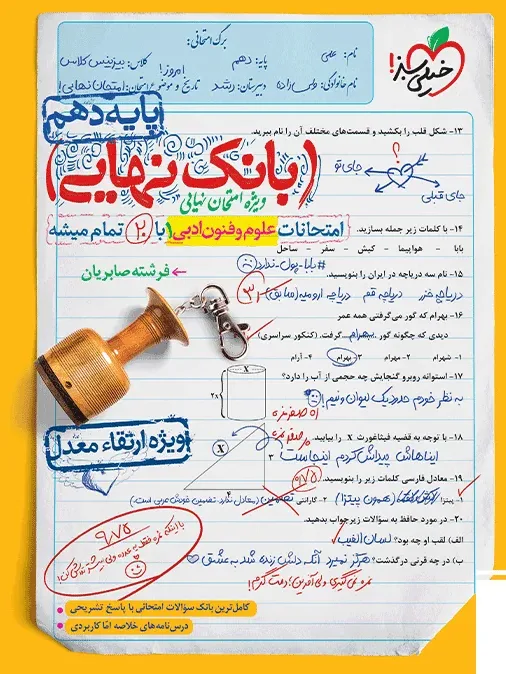 برگ امتحانی:
نام: علی
پایه: دهم
کلاس: بیزینس کلاس
نام خانوادگی:
دبیرستان: رشد
امروز!
تاریخ و موضوع امتحان: امتحان نهایی!
خیلی سبز!
پایه دهم
۱۳- شکل قلب را بکشید و قسمت‌های مختلف آن را نام ببرید.
؟
جای تو
جای قبلی
(بانک نهایی)
ویژه امتحان نهایی
امتحانات علوم و فنون ادبی ۱ با ۲۰ تمام میشه
۱۴- با کلمات زیر جمله بسازید.
بابا - هواپیما - کیش - سفر - ساحل
#بابا_پول_ندارد
فرشته صابریان
۱۵- نام سه دریاچه در ایران را بنویسید.
دریاچه خزر دریاچه قم دریاچه ارومیه (سابق)
۱۶- بهرام که گور می‌گرفتی همه عمر
دیدی که چگونه گور بهرام گرفت. (کنکور سراسری)
۱- شهرام ۲- مهرام ۳- بهرام ۴- آرام
۱۷- استوانه روبرو گنجایش چه حجمی از آب را دارد؟
X
۲X
به نظر خودم حدود یک لیوان و نیم!
ویژه ارتقاء معدل
۱۸- با توجه به قضیه فیثاغورث X را بیابید.
X
۳
۴
ایناهاش پیداش کردم اینجاست
۱۹- معادل فارسی کلمات زیر را بنویسید.
۱- پیتزا (همون پیتزا) ۲- گارانتی تضمین (معادل ندارد تضمین خودش عربی است.)
۲۰- در مورد حافظ به سؤالات زیر جواب بدهید.
الف) لقب او چه بود؟ لسان الغیب
ب) در چه قرنی درگذشت؟ هرگز نمیرد آنکه دلش زنده شد به عشق
نمره نمی‌گیری ولی آفرین! دقت کردم!
۹/۷۵
کامل‌ترین بانک سؤالات امتحانی با پاسخ تشریحی
درس‌نامه‌های خلاصه امّا کاربردی